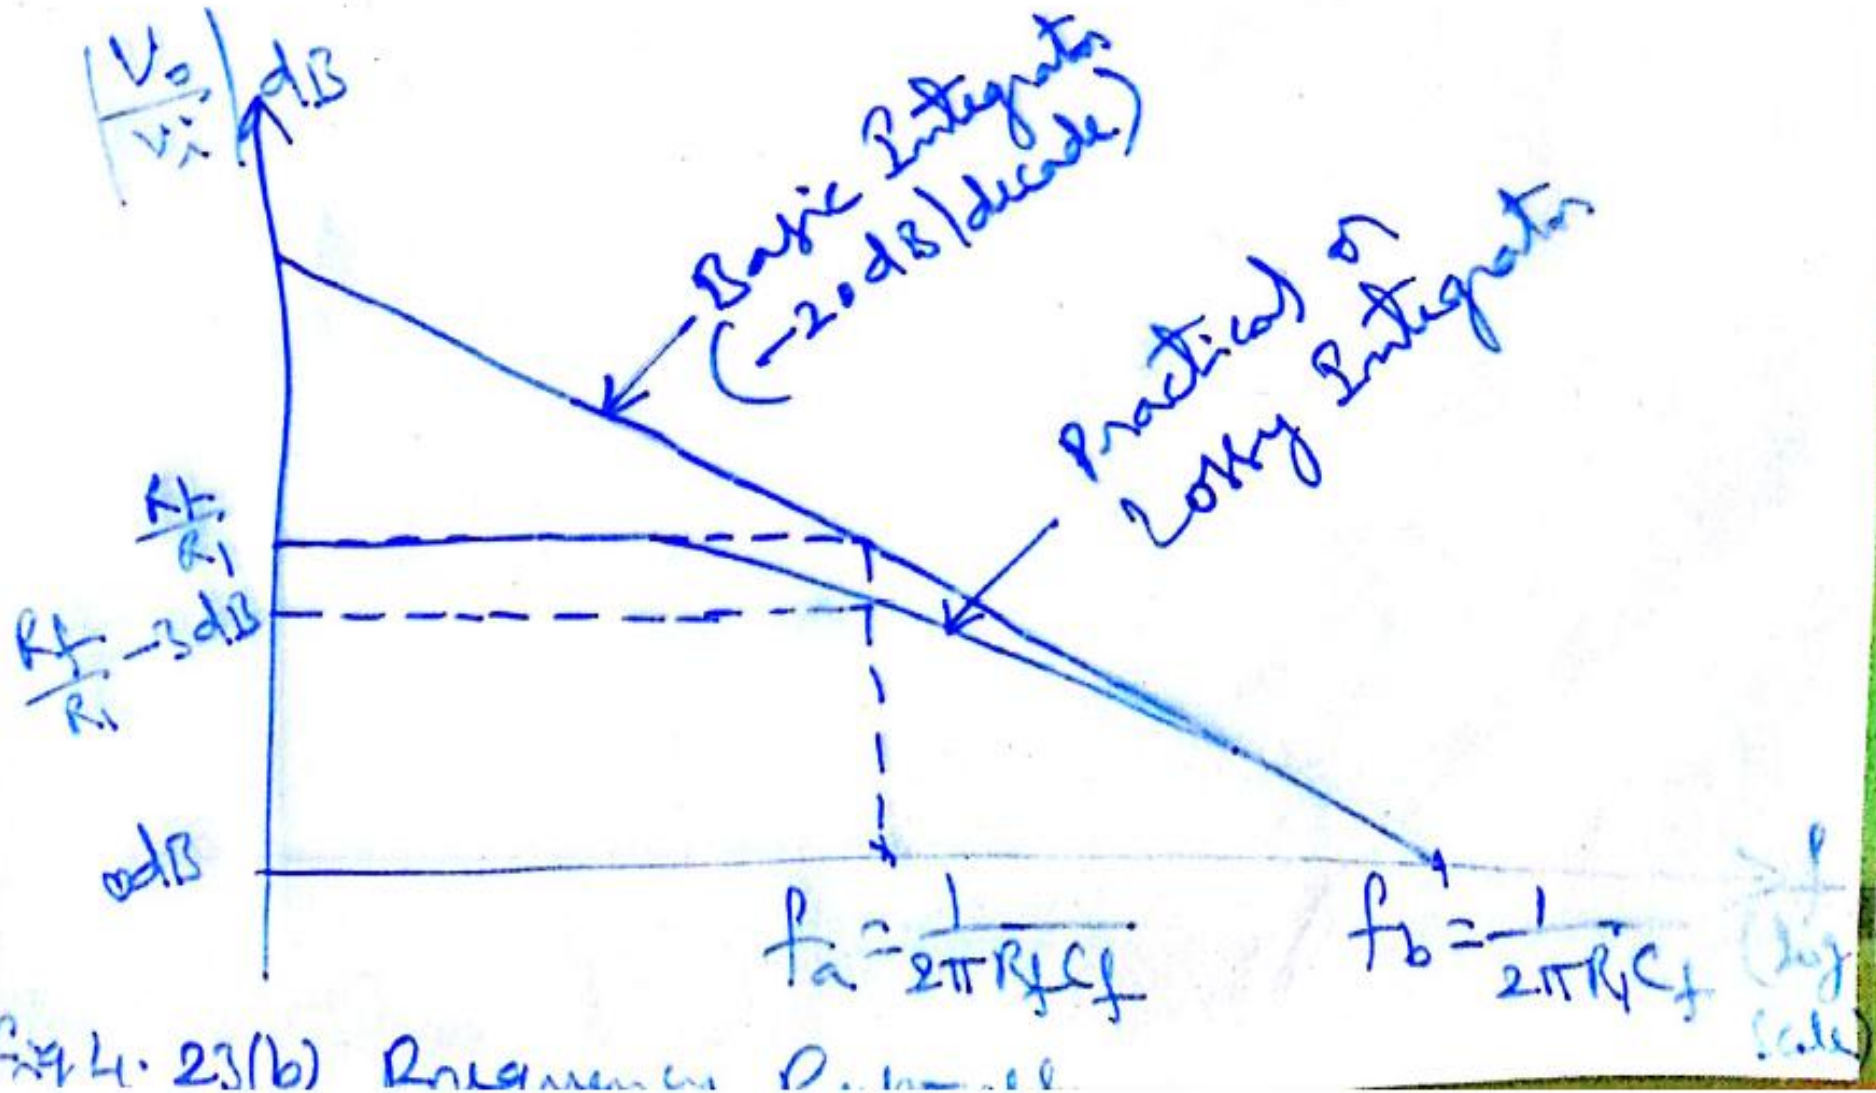 |Vo/Vi| dB
Basic Integrator
(-20dB/decade)
Practical or
Lossy Integrator
Rf/R1
Rf/R1 -3dB
0dB
fa = 1/2πRfCf
fb = 1/2πR1Cf
f
(log
scale)
Fig 4.23(b) Frequency